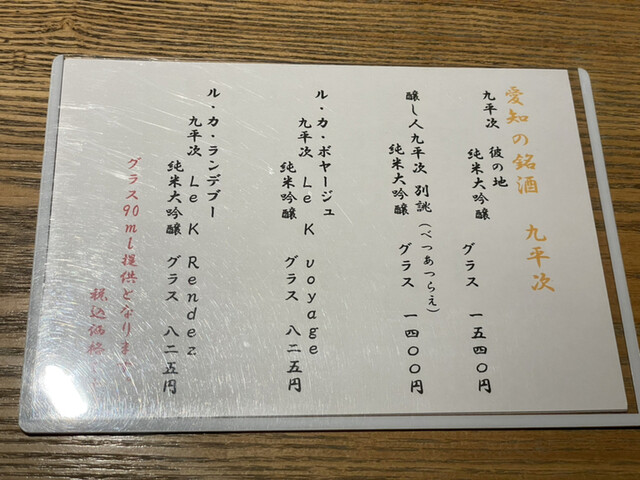 愛知の銘酒 九平次
九平次 彼の地
純米大吟醸 グラス 一五四〇円
醸し人九平次 別誂(べつあつらえ)
純米大吟醸 グラス 一四〇〇円
ル・カ・ボヤージュ
九平次 Le K voyage
純米吟醸 グラス 八二五円
ル・カ・ランデブー
九平次 Le K Rendez
純米大吟醸 グラス 八二五円
グラス90ml提供となります
税込価格